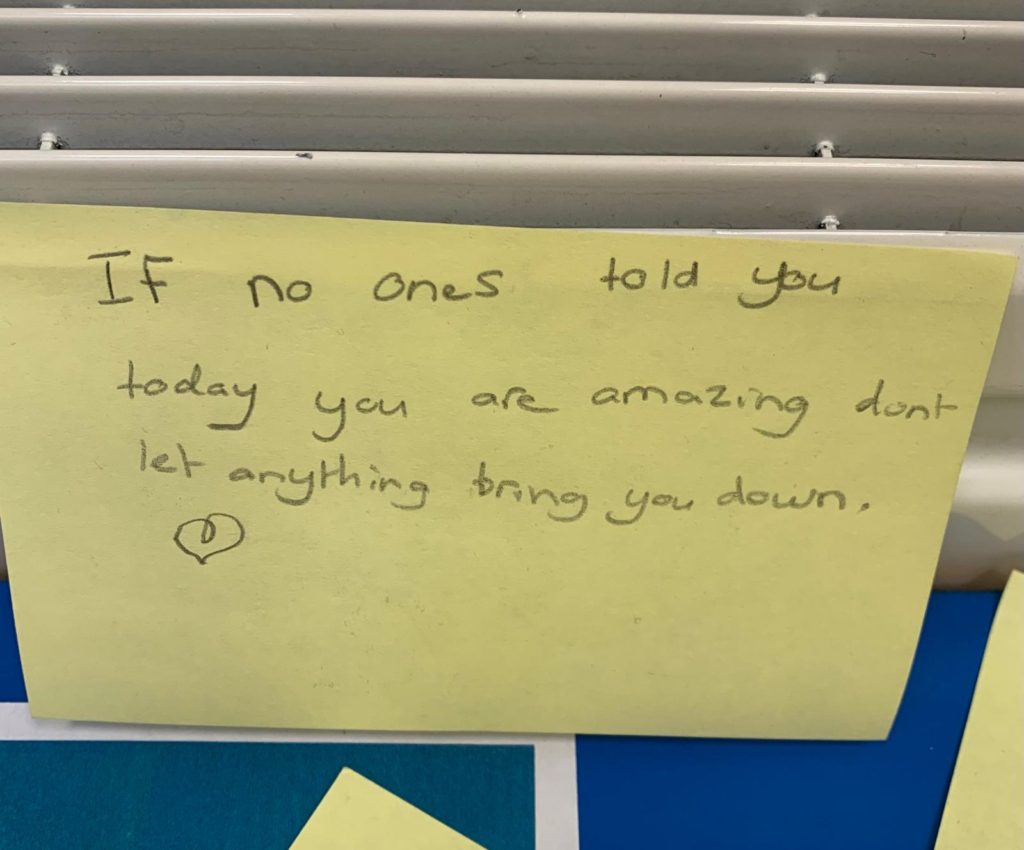 If no ones told you
today you are amazing dont
let anything bring you down.